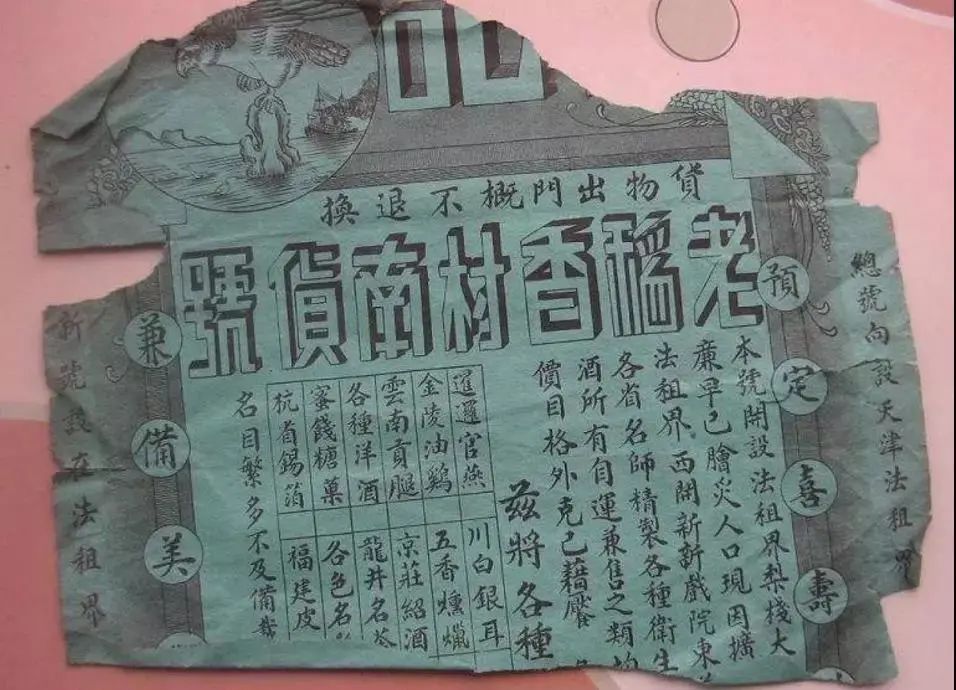 貨物出門概不退換
老稻香村南貨號
總號向設天津法租界
預定喜壽
本號開設法租界梨棧大
廉早已膾炙人口現因擴
法租界西開新新戲院東
各省名師精製各種衛生
酒所有自運兼售之類均
價目格外克己藉饜
茲將各種
暹邏官燕
金陵油鷄
雲南貢腿
各種洋酒
蜜餞糖菓
杭省錫箔
川白銀耳
五香燻臘
京莊紹酒
龍井名茶
各色名
福建皮
名目繁多不及備載
兼備美
新號設在法租界